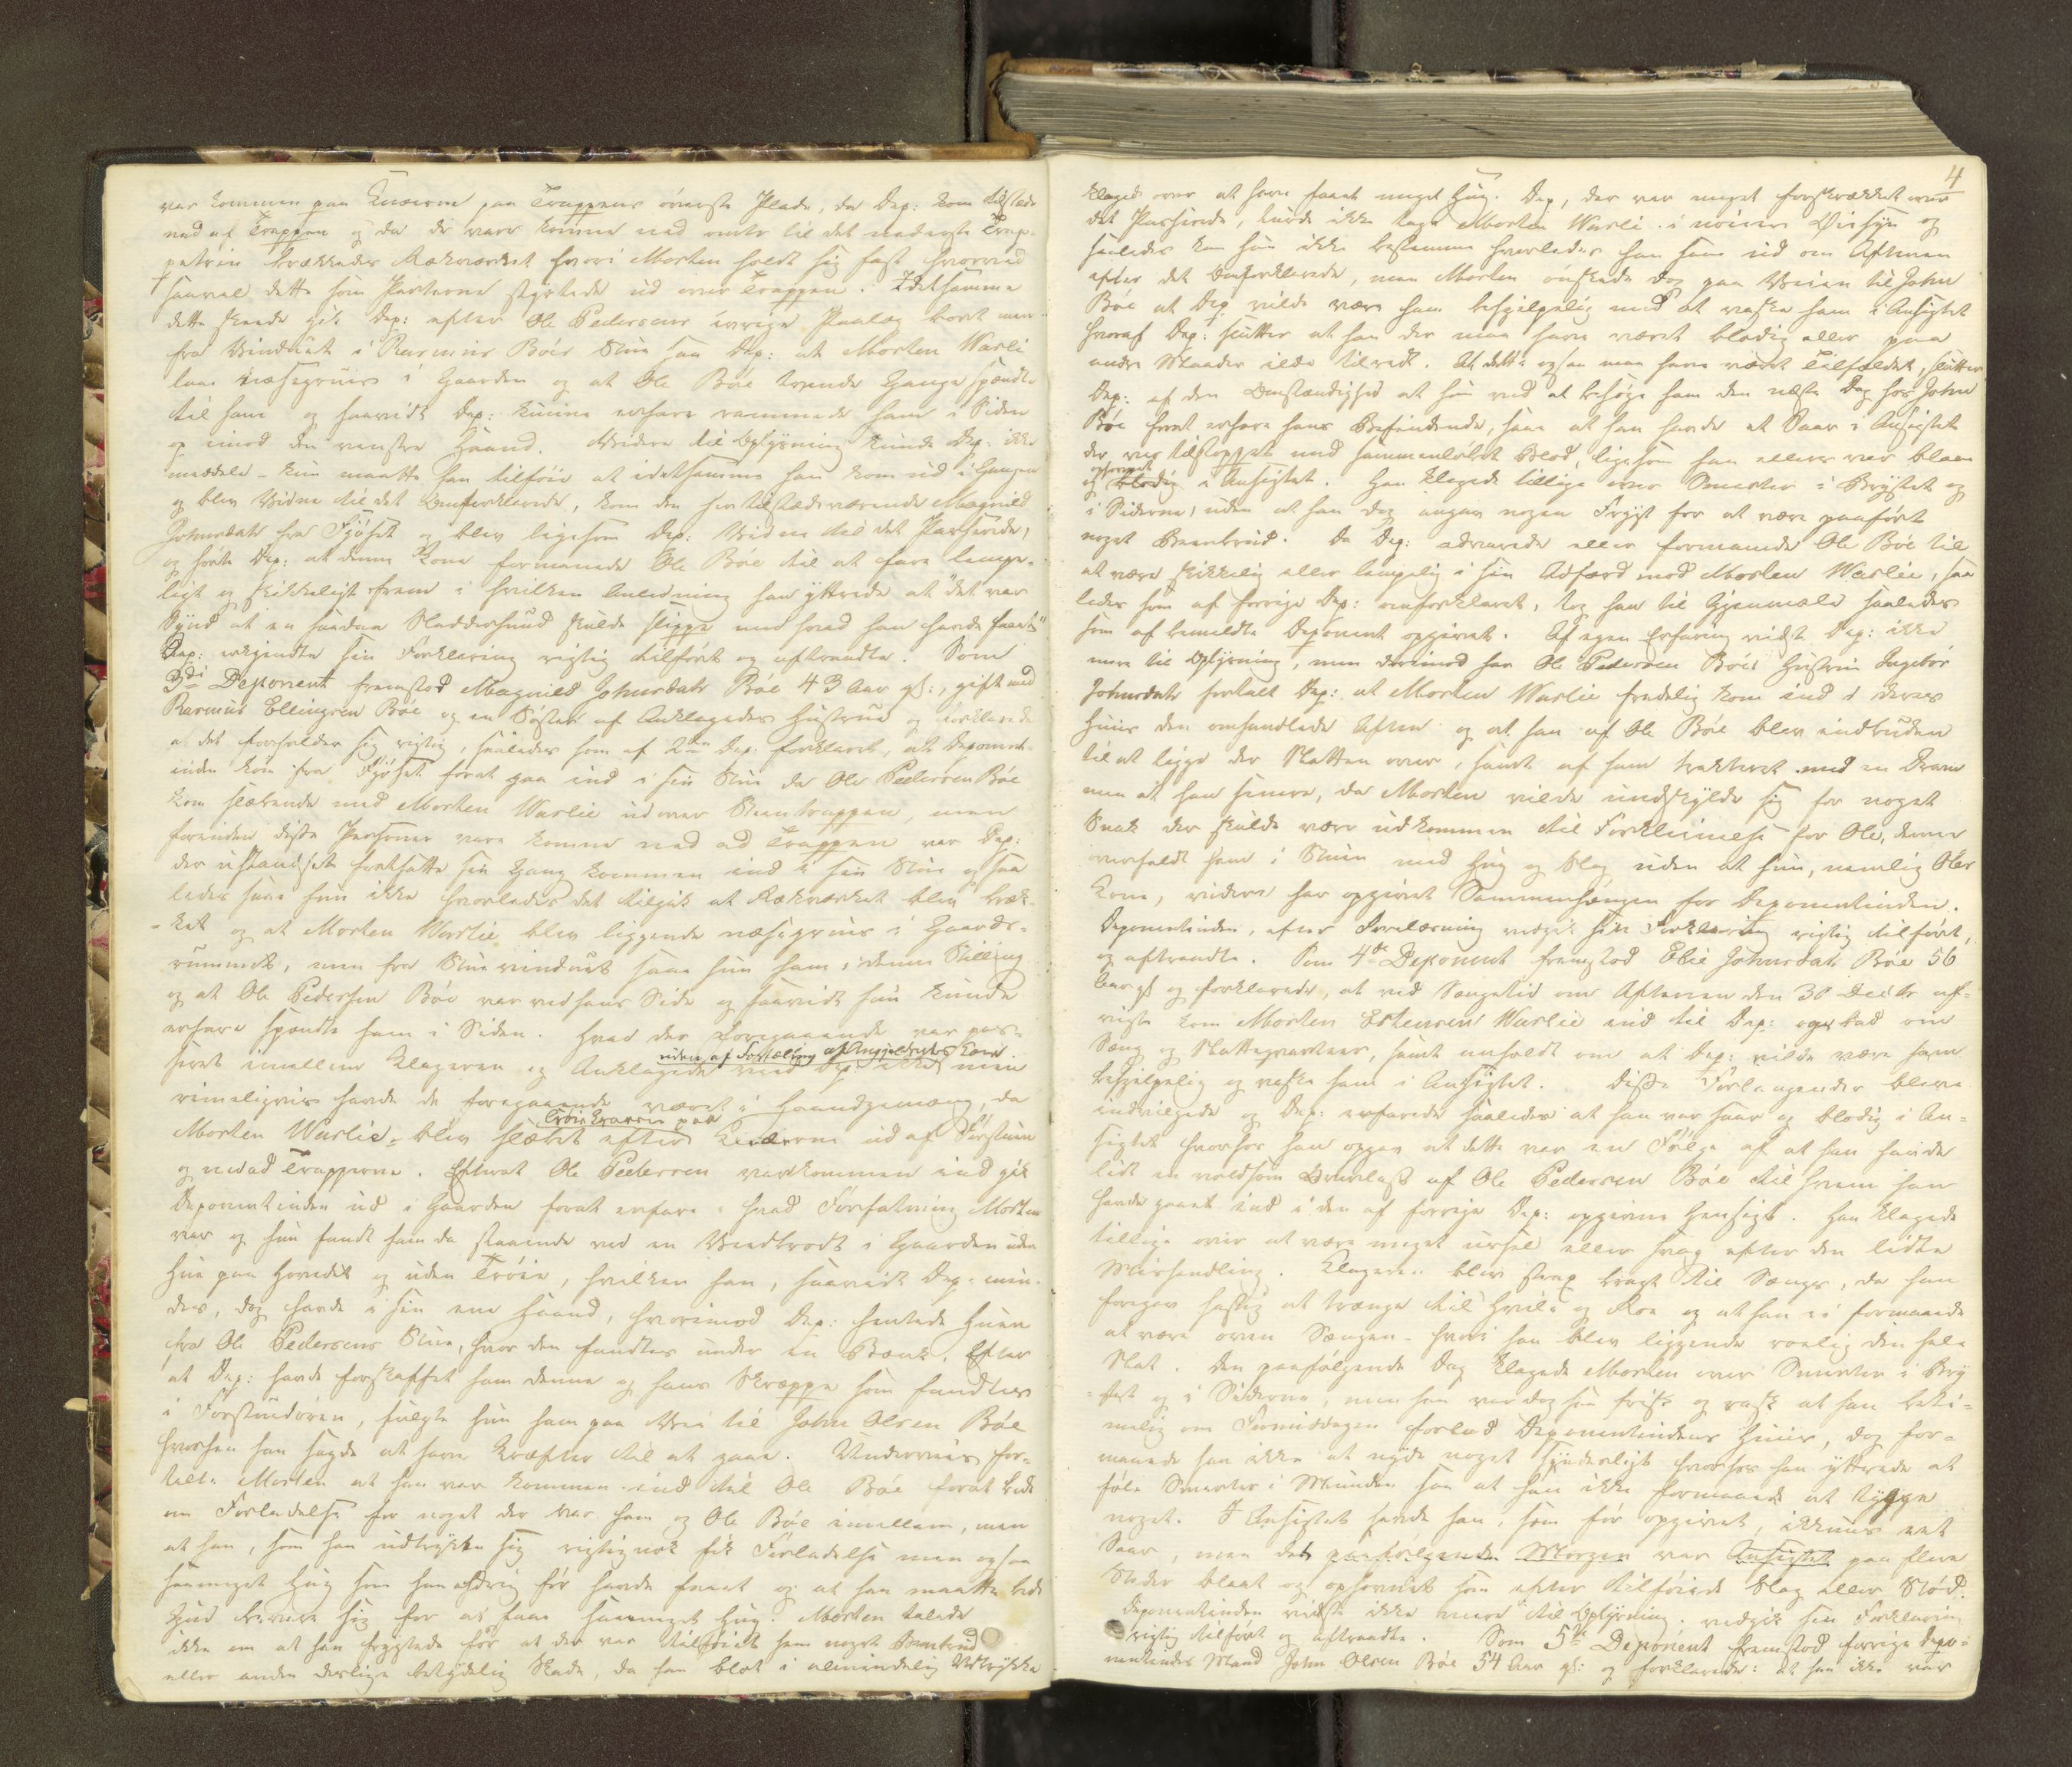 var kommen paa Knæerne paa Trappens överste Plade, da Dep: kom tilstede
ned af Trappen og da de vare komne ned omtr til det nederste Trap-
petrin brækkedes Rækværket hvori Morten holdt sig fast hvorved
saavel dette som Parterne styrtede ud over Trappen. Idetsamme
dette skeede gik Dep: efter Ole Pedersens ivrige Paalæg bort men
fra Vinduet i Rasmus Böes Stue saa Dep: at Morten Warlie
laae næsegruus i Gaarden og at Ole Böe tvende Gange spændte
til ham og saavidt Dep: kunne erfare rammede ham i Siden
og imod den venstre Haand. Videre til Oplysning kunde Dep: ikke
meddele - kun maatte han tilföie at idetsamme han kom ud i Gangen
og blev Vidne til det Omforklarede, kom den her tilstædeværende Magnild
Johnsdatr fra Fjöset og blev ligesom Dep: Vidne til det Passerede,
og hörte Dep: at denne Kone formanede Ole Böe til at fare lempe-
ligt og skikkeligt frem i hvilken Anledning han yttrede at "det var
Synd at en saadan Sladderhund skulde slippe med hvad han havde faaet"
Dep: vedgiendte sin Forklaring rigtig tilfört og aftraadte. Som
3die Deponent fremstod Magnild Johnsdatr Böe 43 Aar gl:, gift med
Rasmus Ellingsen Böe og en Söster af Anklagedes Hustrue og forklarede
at det forholder sig rigtig, saaledes som af 2den Dep: forklaret, at Deponent-
inden kom fra Fjöset forat gaa ind i sin Stue da Ole Pedersen Böe
kom slæbende med Morten Warlie ud over Steentrappen, men
forinden disse Personer vare komne ned ad Trappen var Dep:
der ustandset fortsatte sin Gang kommen ind i sin Stue og saa
ledes saae hun ikke hvorledes det tilgik at Rækværket blev bræk-
ket og at Morten Warlie blev liggende næsegruus i Gaards-
rummet, men fra Stuevinduet saae hun ham i denne Stilling
og at Ole Pedersen Böe var ved hans Side og saavidt hun kunde
erfare spændte ham i Siden. Hvad der foregaaende var pas-
uden af Fortælling af Angjeldendes Kone.
seret imellem Klageren og Anklagede veed Dep: ikke men
rimeligviis havde de foregaaende været i Haandgemæng, da
Tröiekraven paa
Morten Warlie blev slæbet efter Knæerne ud af Forstuen
og nedad Trapperne. Efterat Ole Pedersen var kommen ind gik
Deponentinden ud i Gaarden forat erfare i hvad Forfatning Morten
var og hun fandt ham da staaende ved en Vedbrodt i Gaarden uden
Hue paa Hovedet og uden Tröie, hvilken han, saavidt Dep: min-
des, dog havde i sin ene Haand, hvorimod Dep: hentede Huen
fra Ole Pedersens Stue, hvor den fandtes under en Bænk. Efter
at Dep: havde forskaffet ham denne og hans Skræppe som fandtes
i Forstuedören, fulgte hun ham paa Vei til John Olsen Böe
hvorhen han sagde at have Kræfter til at gaae. Underveis for-
talte Morten at han var kommen ind til Ole Böe forat bede
om Forladelse for noget der var ham og Ole Böe imellem, men
at han, som han udtrykte sig rigtignok fik Forladelse men ogsaa
saameget Hug som han aldrig för havde faaet og at han maatte bede
Gud bevare sig for at faae saameget Hug. Morten talede
ikke om at han frygtede for at der var tilföiet ham noget Beenbrud
eller anden deslige betydelig Skade, da han blot i almindelig Udtrykke
4
klagede over at have faaet meget Hug. Dep, der var meget forskrækket over
det Passerede, turde ikke tage Morten Warli i nöiere Öiesyn og
saaledes kan hun ikke bestemme hvorledes han saae ud om Aftenen
efter det Omforklarede, men Morten önskede dog paa Veien til John
Böe at Dep vilde være ham behjelpelig med at vaske ham i Ansigtet
hvoraf Dep: slutter at han der maa have været blodig eller paa
andre Maader ilde tilredt. At dette ogsaa maa have været Tilfældet, slutter
Dep: af den Omstændighed at hun ved at besöge ham den næste Dag hos John
Böe forat erfare hans Befindende, saae at han havde et Saar i Ansigtet
der var tilstoppet med sammenlöbet Blod, ligesom han ellers var blaae
ophovnet
og blodig i Ansigtet. Han klagede tillige over Smerter i Brystet og
i Siderne, uden at han dog angav nogen Frygt for at være paafört
noget Beenbrud. Da Dep: advarede eller formanede Ole Böe til
at være skikkelig eller lempelig i sin Adfærd mod Morten Warlie, saa
ledes som af forrige Dep: omforklaret, tog han til Gjenmæle saaledes
som af bemeldte Deponent opgivet. Af egen Erfaring vidste Dep: ikke
mere til Oplysning, men derimod har Ole Pedersen Böes Hustrue Ingebor
Johnsdatr fortalt Dep: at Morten Warlie fredelig kom ind i deres
Huus den omhandlede Aften og at han af Ole Böe blev indbuden
til at ligge der Natten over, samt af ham trakteret med en Dram
men at han senere, da Morten vilde undskylde sig for noget
Snak der skulde være udkommen til Forkleinelse for Ole, denne
overfaldt ham i Stuen med Hug og Slag uden at hun, nemlig Oles
Kone, videre har opgivet Sammenhængen for Deponentinden.
Deponentinden, efter Oplæsning vedgik sin Forklaring rigtig tilfört,
og aftraadte. Som 4de Deponent fremstod Elie Johnsdatr Böe 56
Aar gl og forklarede, at ved Sengetid om Aftenen den 30 Decbr af-
vigte kom Morten Estensen Warlie ind til Dep: og bad om
Seng og Natteqvarteer, samt anholdt om at Dep: vilde være ham
behjelpelig og vaske ham i Ansigtet. Disse Forlangender bleve
indvilgede og Dep: erfarede saaledes at han var saar og blodig i An-
sigtet hvorhos han opgav at dette var en Fölge af at han havde
lidt en voldsom Overlast af Ole Pedersen Böe til hvem han
havde gaaet ind i den af forrige Dep: opgivne Hensigt. Han klagede
tillige over at være meget ussel eller svag efter den lidte
Mishandling. Klageren blev strax bragt til Sengs, da han
foregav hastig at trænge til Hvile og Roe og at han ei formaaede
at være oven Sengen - hvori han blev liggende roelig den hele
Nat. Den paafölgende Dag klagede Morten over Smerter i Bry
stet og i Siderne, men han var dog saa frisk og rask at han beti-
melig om Formiddagen forlod Deponentindens Huus, dog for-
maaede han ikke at nyde noget synderligt hvorhos han yttrede at
föle Smerter i Munden saa at han ikke formaaede at tygge
noget. I Ansigtet havde han, som för opgivet, ikkuns eet
Saar, men den paafölgende Morgen var Ansigtet paa flere
Steder blaat og ophovnet som efter tilföiede Slag eller Stöd.
Deponentinden vidste ikke mere til Oplysning, vedgik sin Forklaring
rigtig tilfört og aftraadte. Som 5te Deponent fremstod forrige Depo-
nentindes Mand John Olsen Böe 54 Aar gl: og forklarede: at han ikke var